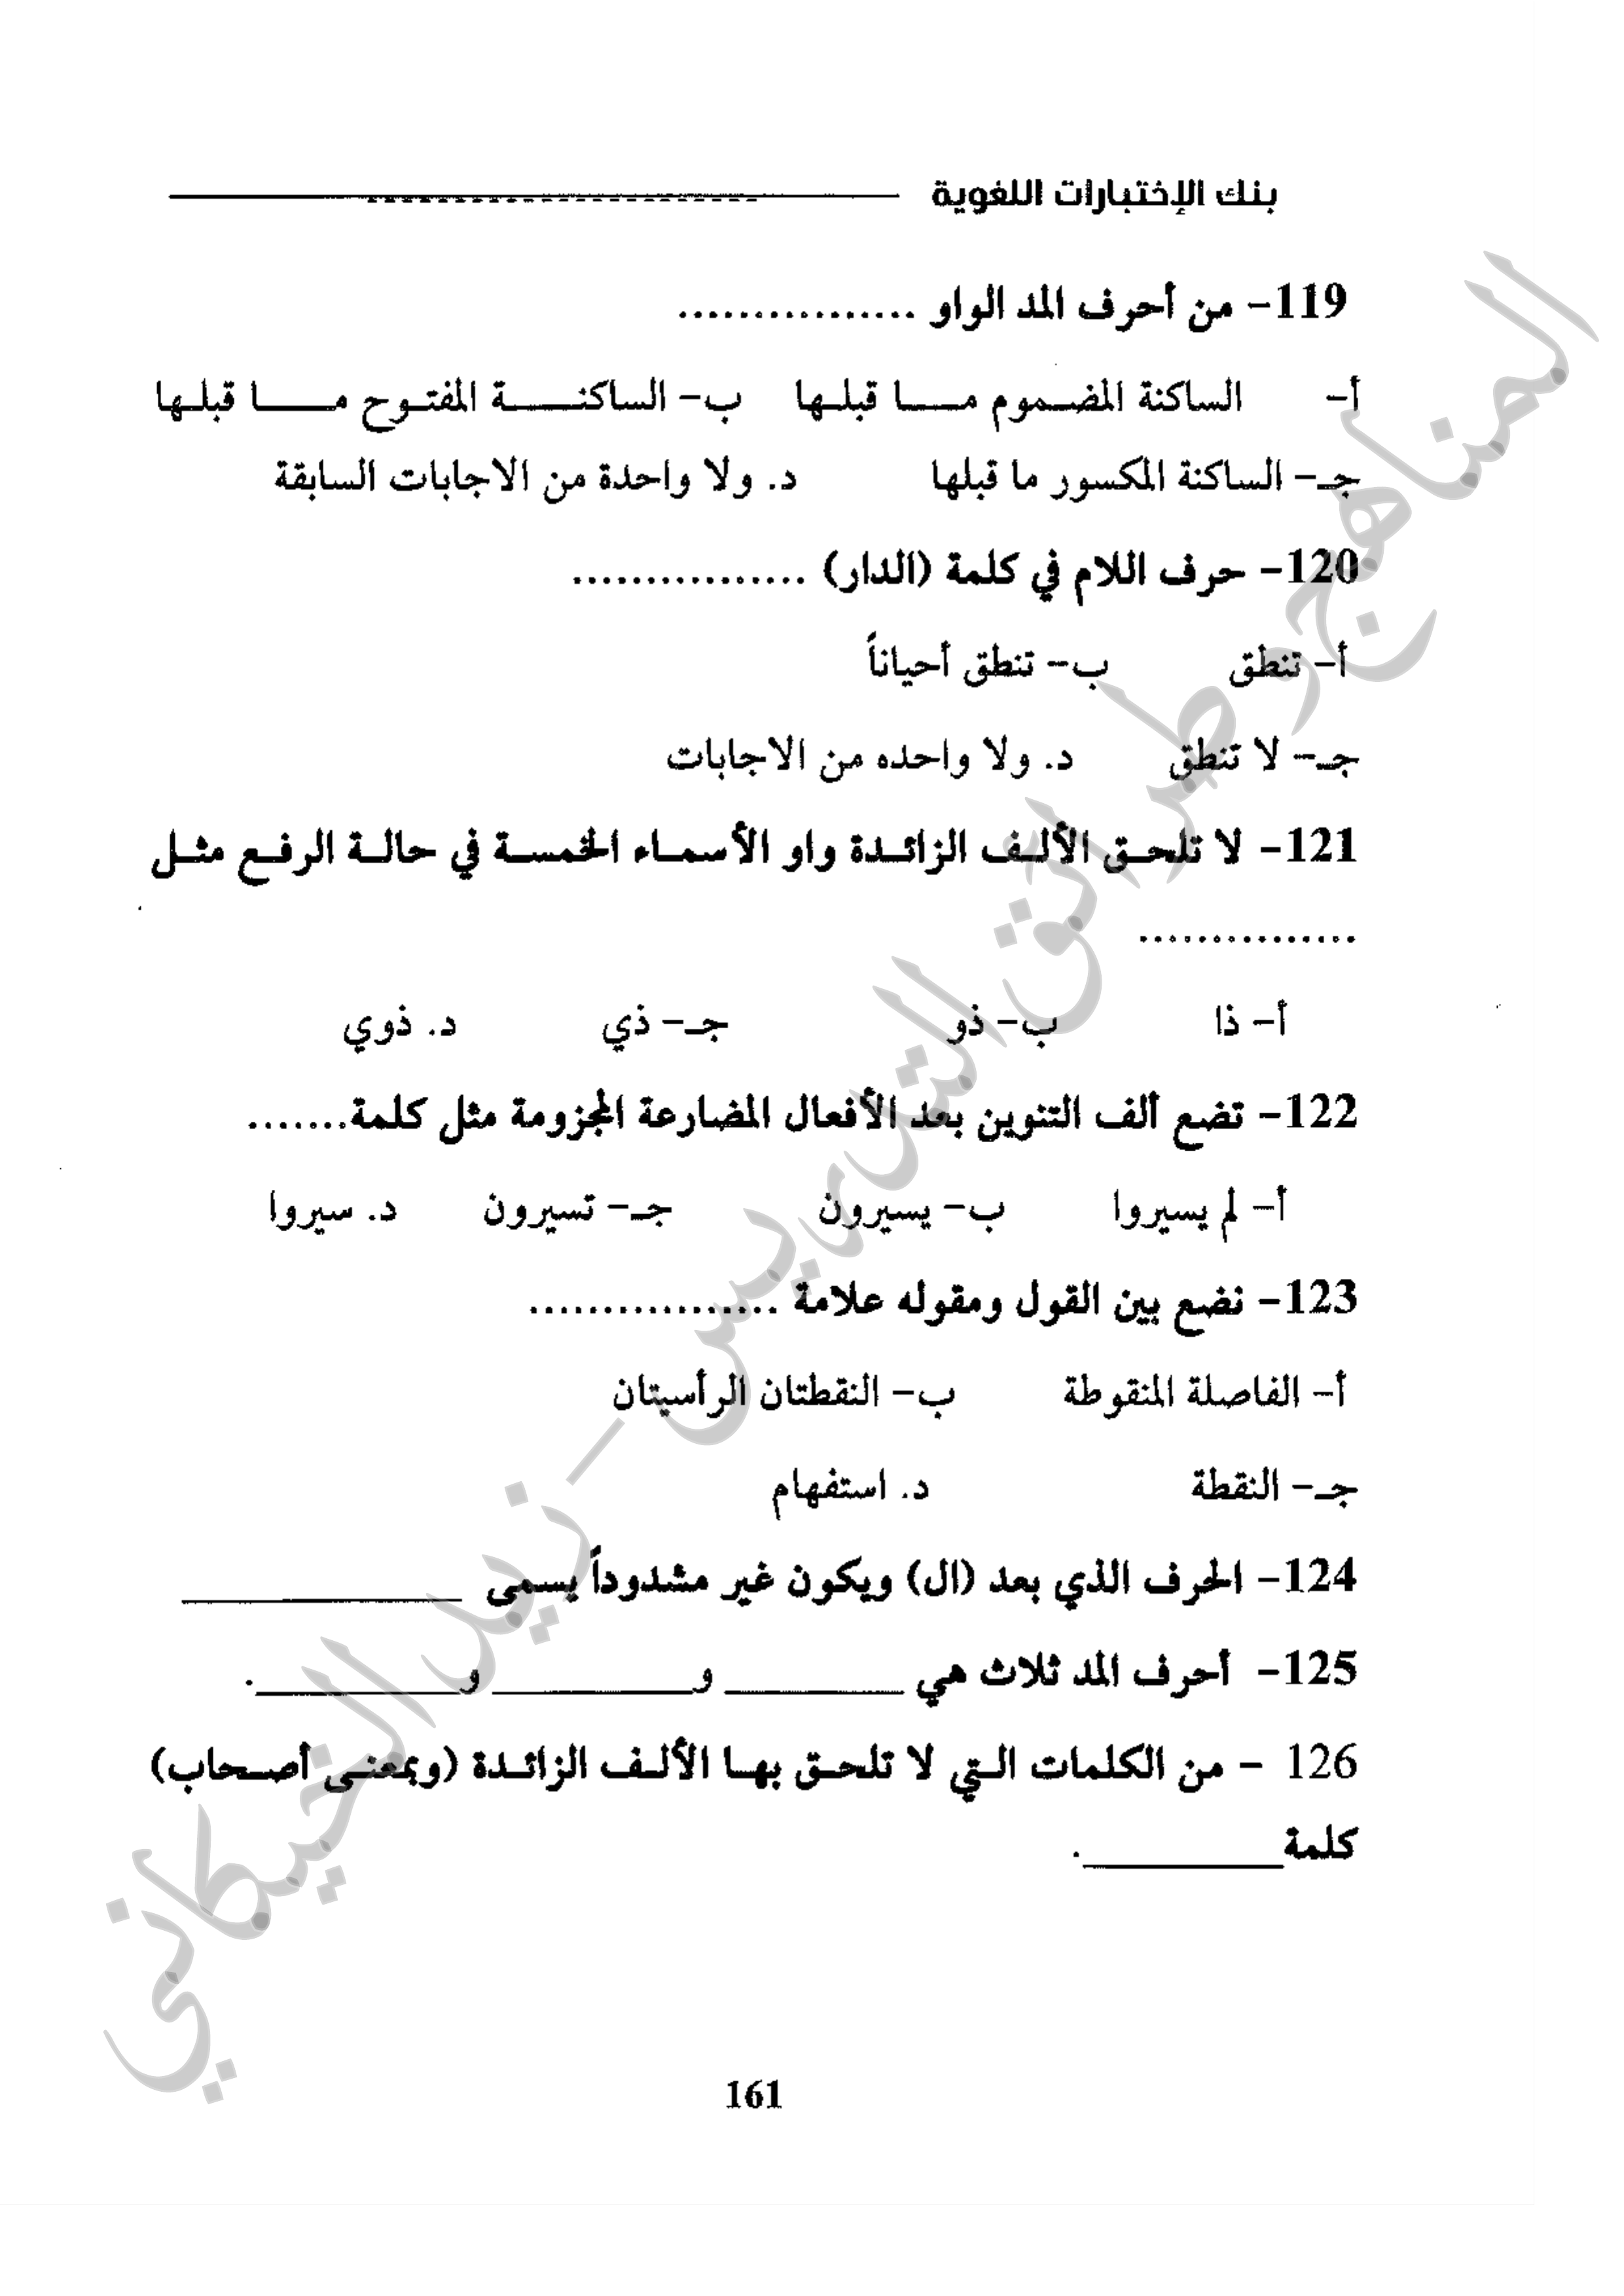 بنك الإختبارات اللغوية
119- من أحرف المد الواو ................
أ- الساكنة المضموم ما قبلها ب- الساكنة المفتوح ما قبلها
جـ- الساكنة المكسور ما قبلها د. ولا واحدة من الاجابات السابقة
120- حرف اللام في كلمة (الدار) ................
أ- تنطق ب- تنطق أحياناً
جـ- لا تنطق د. ولا واحده من الاجابات
121- لا تلحق الألف الزائدة واو الأسماء الخمسة في حالة الرفع مثل
...............
أ- ذا ب- ذو جـ- ذي د. ذوي
122- تضع ألف التنوين بعد الأفعال المضارعة المجزومة مثل كلمة.......
أ- لم يسيروا ب- يسيرون جـ- تسيرون د. سيروا
123- نضع بين القول ومقوله علامة .................
أ- الفاصلة المنقوطة ب- النقطتان الرأسيتان
جـ- النقطة د. استفهام
124- الحرف الذي بعد (ال) ويكون غير مشدوداً يسمى ____________
125- أحرف المد ثلاث هي ________ و_________ و_________.
126 - من الكلمات التي لا تلحق بها الألف الزائدة (وبمعنى أصحاب)
كلمة_________.
161
المناهج وطرائق التدريس - زيد الخيكاني